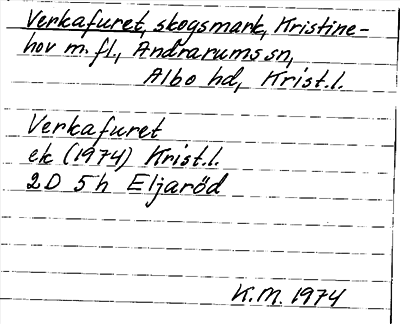 Verkafuret, skogsmark, Kristine-
hov m.fl., Andrarums sn,
Albo hd, Krist.l.
Verkafuret
ek (1974) Krist.l.
2D 5h Eljaröd
K.M. 1974